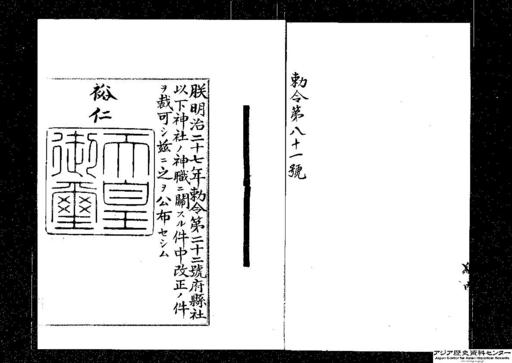 勅令第八十一號
朕明治二十七年勅令第二十二號府縣社
以下神社ノ神職ニ關スル件中改正ノ件
ヲ裁可シ玆ニ之ヲ公布セシム
裕仁
天皇
御璽
アジア歴史資料センター
Japan Center for Asian Historical Records